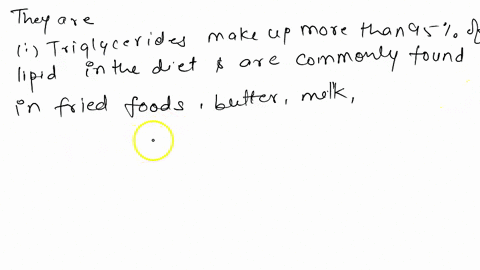 They are
(i) Triglycerides make up more than 95% of
lipid in the diet & are commonly found
in fried foods, butter, milk,